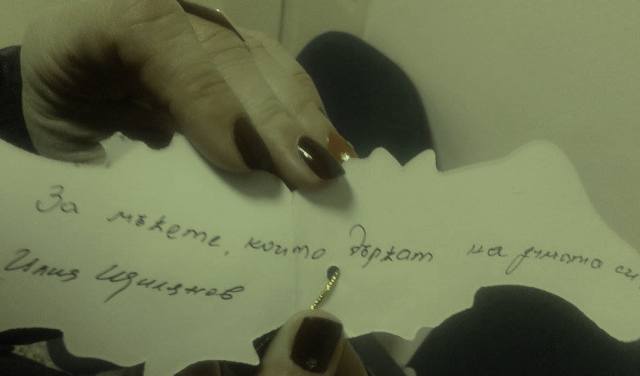 За мъжете, които държат на думата си.
Илия Идилянов